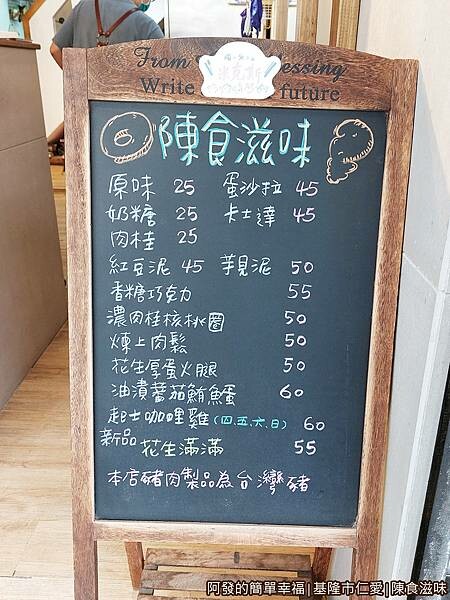 From essing
Write future
米克斯
陳食滋味
原味 25 蛋沙拉 45
奶糖 25 卡士達 45
肉桂 25
紅豆泥 45 芋見泥 50
香糖巧克力 55
濃肉桂核桃圈 50
煉上肉鬆 50
花生厚蛋火腿 50
油漬蕃茄鮪魚蛋 60
起士咖哩雞(四.五.六.日) 60
新品 花生滿滿 55
本店豬肉製品為台灣豬
阿發的簡單幸福|基隆市仁愛|陳食滋味